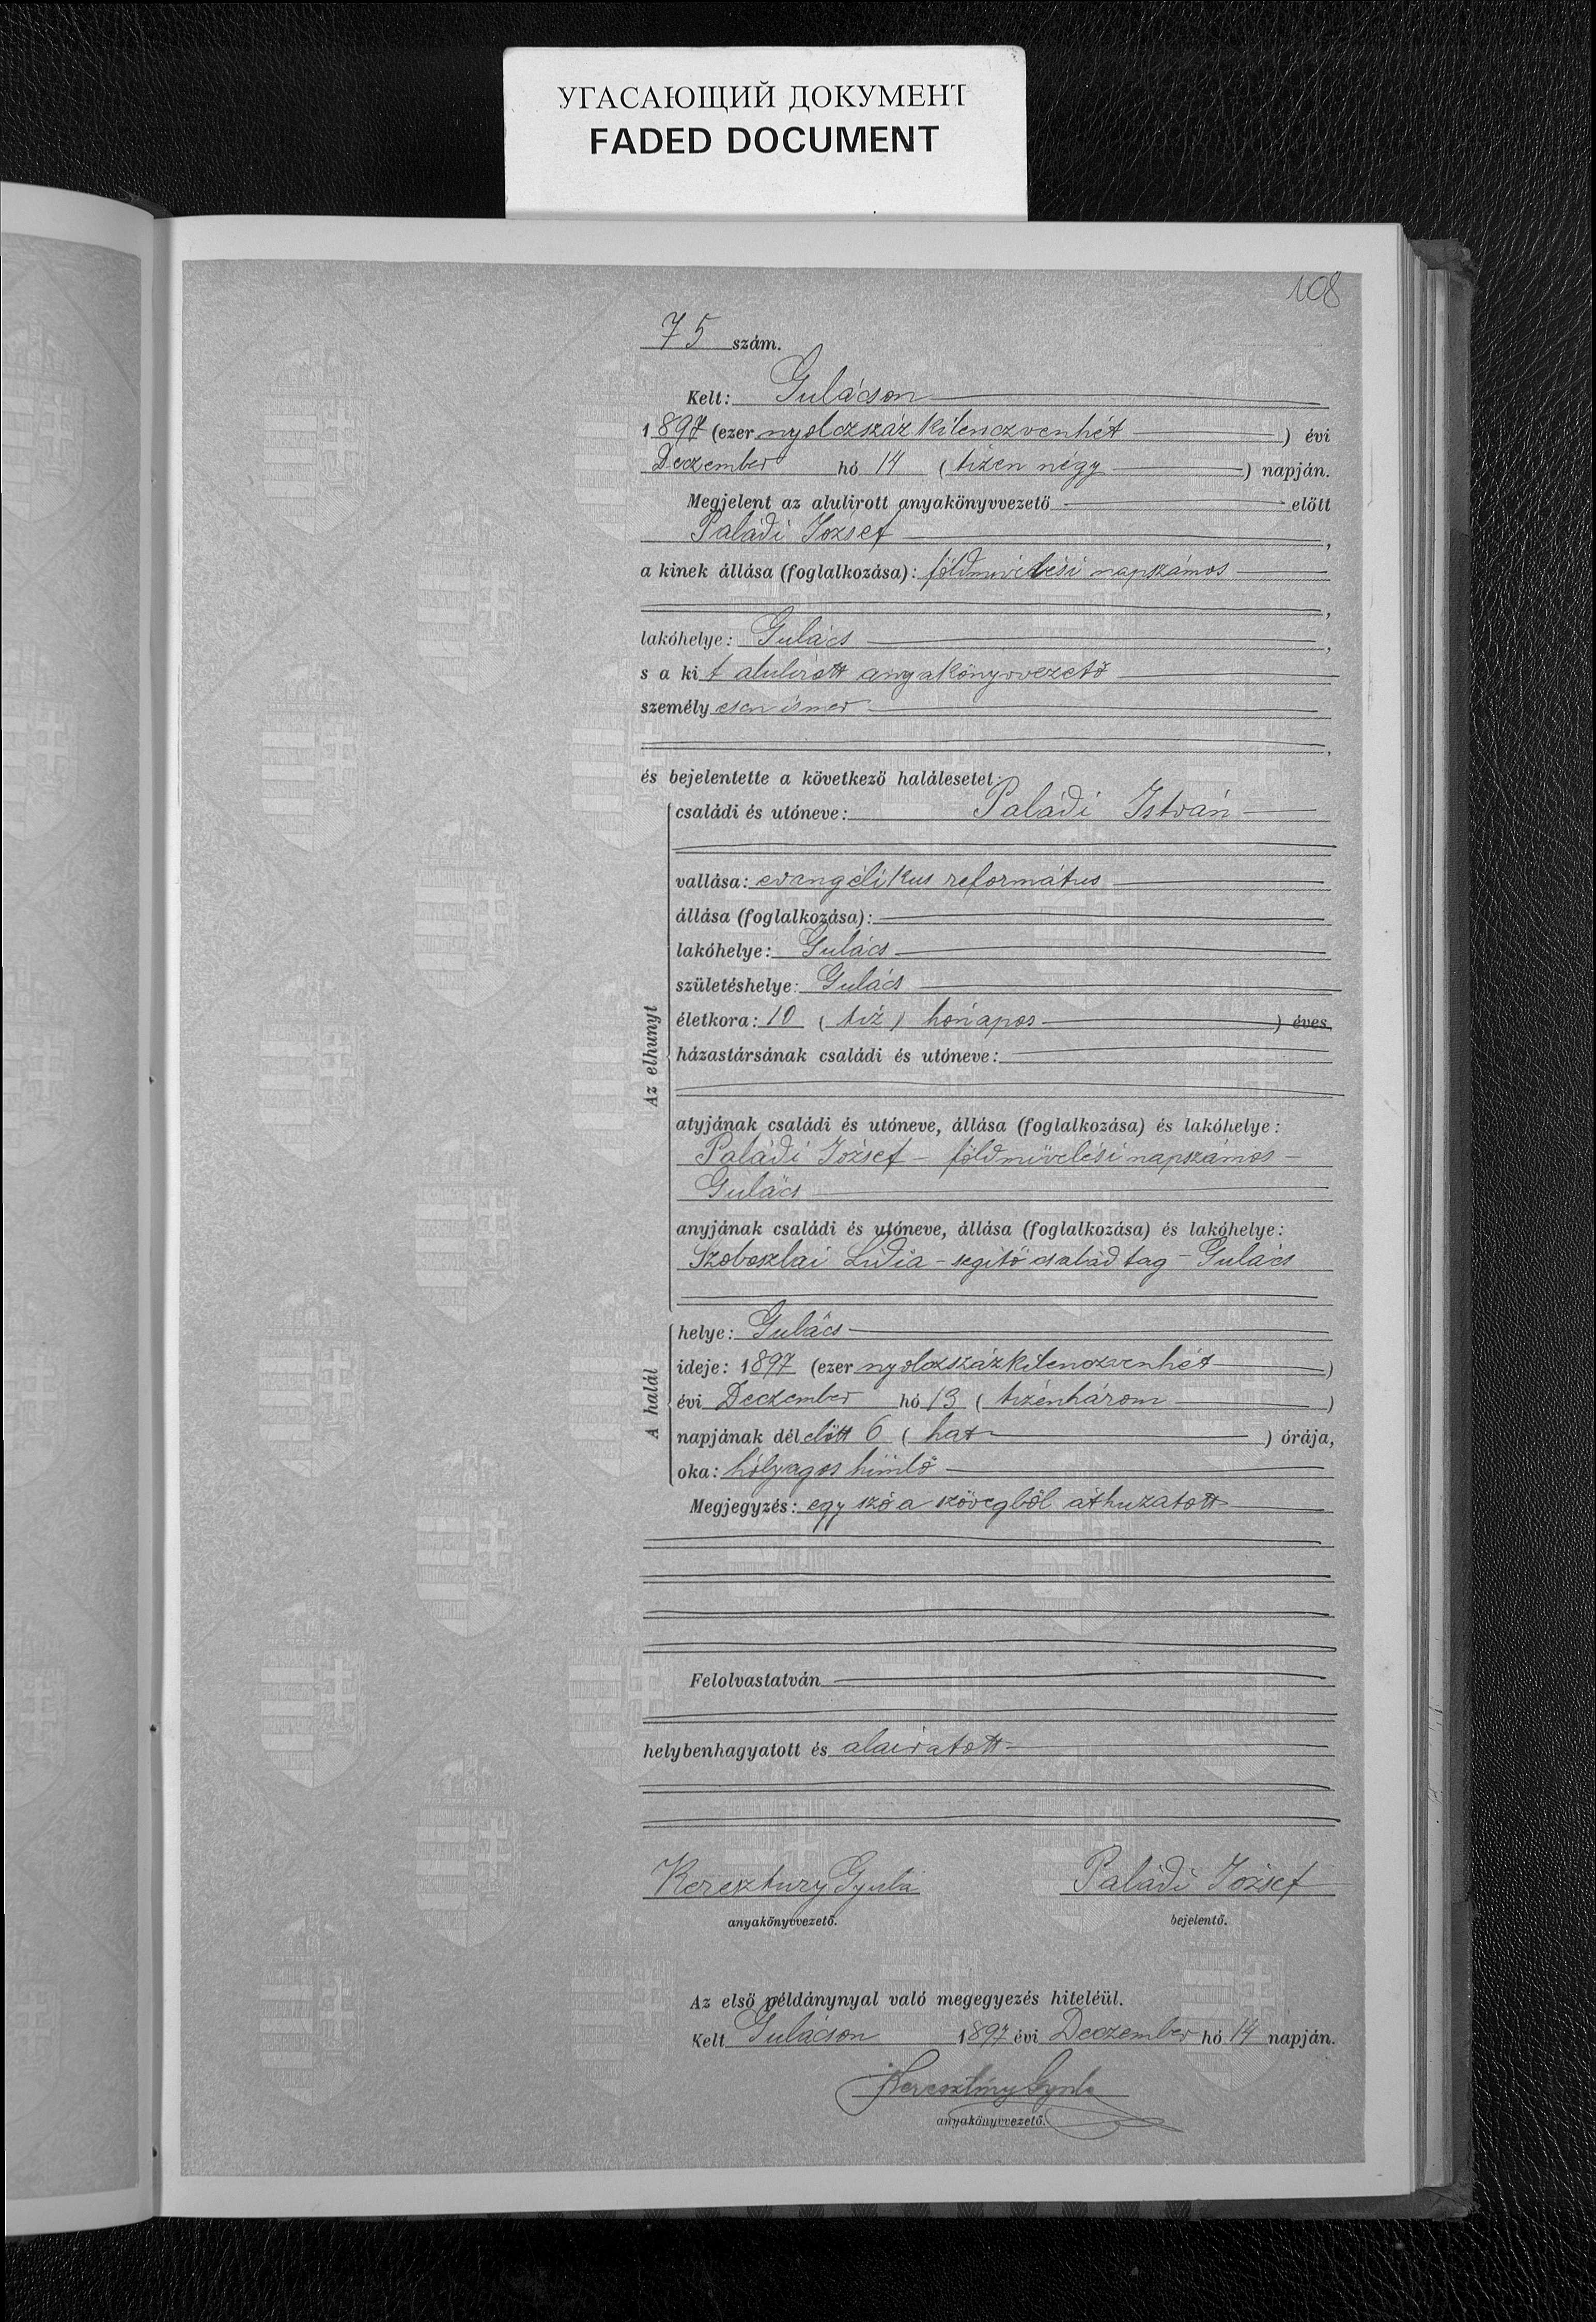 УГАСАЮЩИЙ ДОКУМЕНТ
FADED DOCUMENT
108
75 szám.
Kelt: Gulácson
1897 (ezer nyolczszáz kilenczvenhét ) évi
Deczember hó 14 ( tizen négy ) napján.
Megjelent az alulirott anyakönyvvezető előtt
Paládi József,
a kinek állása (foglalkozása): földmüvelési napszámos
,
lakóhelye: Gulács,
s a kit alulirott anyakönyvvezető
személyesen ismer
,
és bejelentette a következő halálesetet:
Az elhunyt
családi és utóneve: Paládi István
vallása: evangélikus református
állása (foglalkozása):
lakóhelye: Gulács
születéshelye: Gulács
életkora: 10 ( tiz ) hónapos ) éves
házastársának családi és utóneve:
atyjának családi és utóneve, állása (foglalkozása) és lakóhelye:
Paládi József - földmüvelési napszámos -
Gulács
anyjának családi és utóneve, állása (foglalkozása) és lakóhelye:
Szoboszlai Lidia - segitő családtag - Gulács
A halál
helye: Gulács
ideje: 1897 (ezer nyolczszázkilenczvenhét )
évi Deczember hó 13 ( tizenhárom )
napjának délelőtt 6 ( hat ) órája,
oka: hólyagos himlő
Megjegyzés: egy szó a szövegből áthuzatott
Felolvastatván
helybenhagyatott és aláiratott
Keresztury Gyula Paládi József
anyakönyvvezető. bejelentő.
Az első példánynyal való megegyezés hiteléül.
Kelt Gulácson 1897 évi Deczember hó 14 napján.
Keresztury Gyula
anyakönyvvezető.